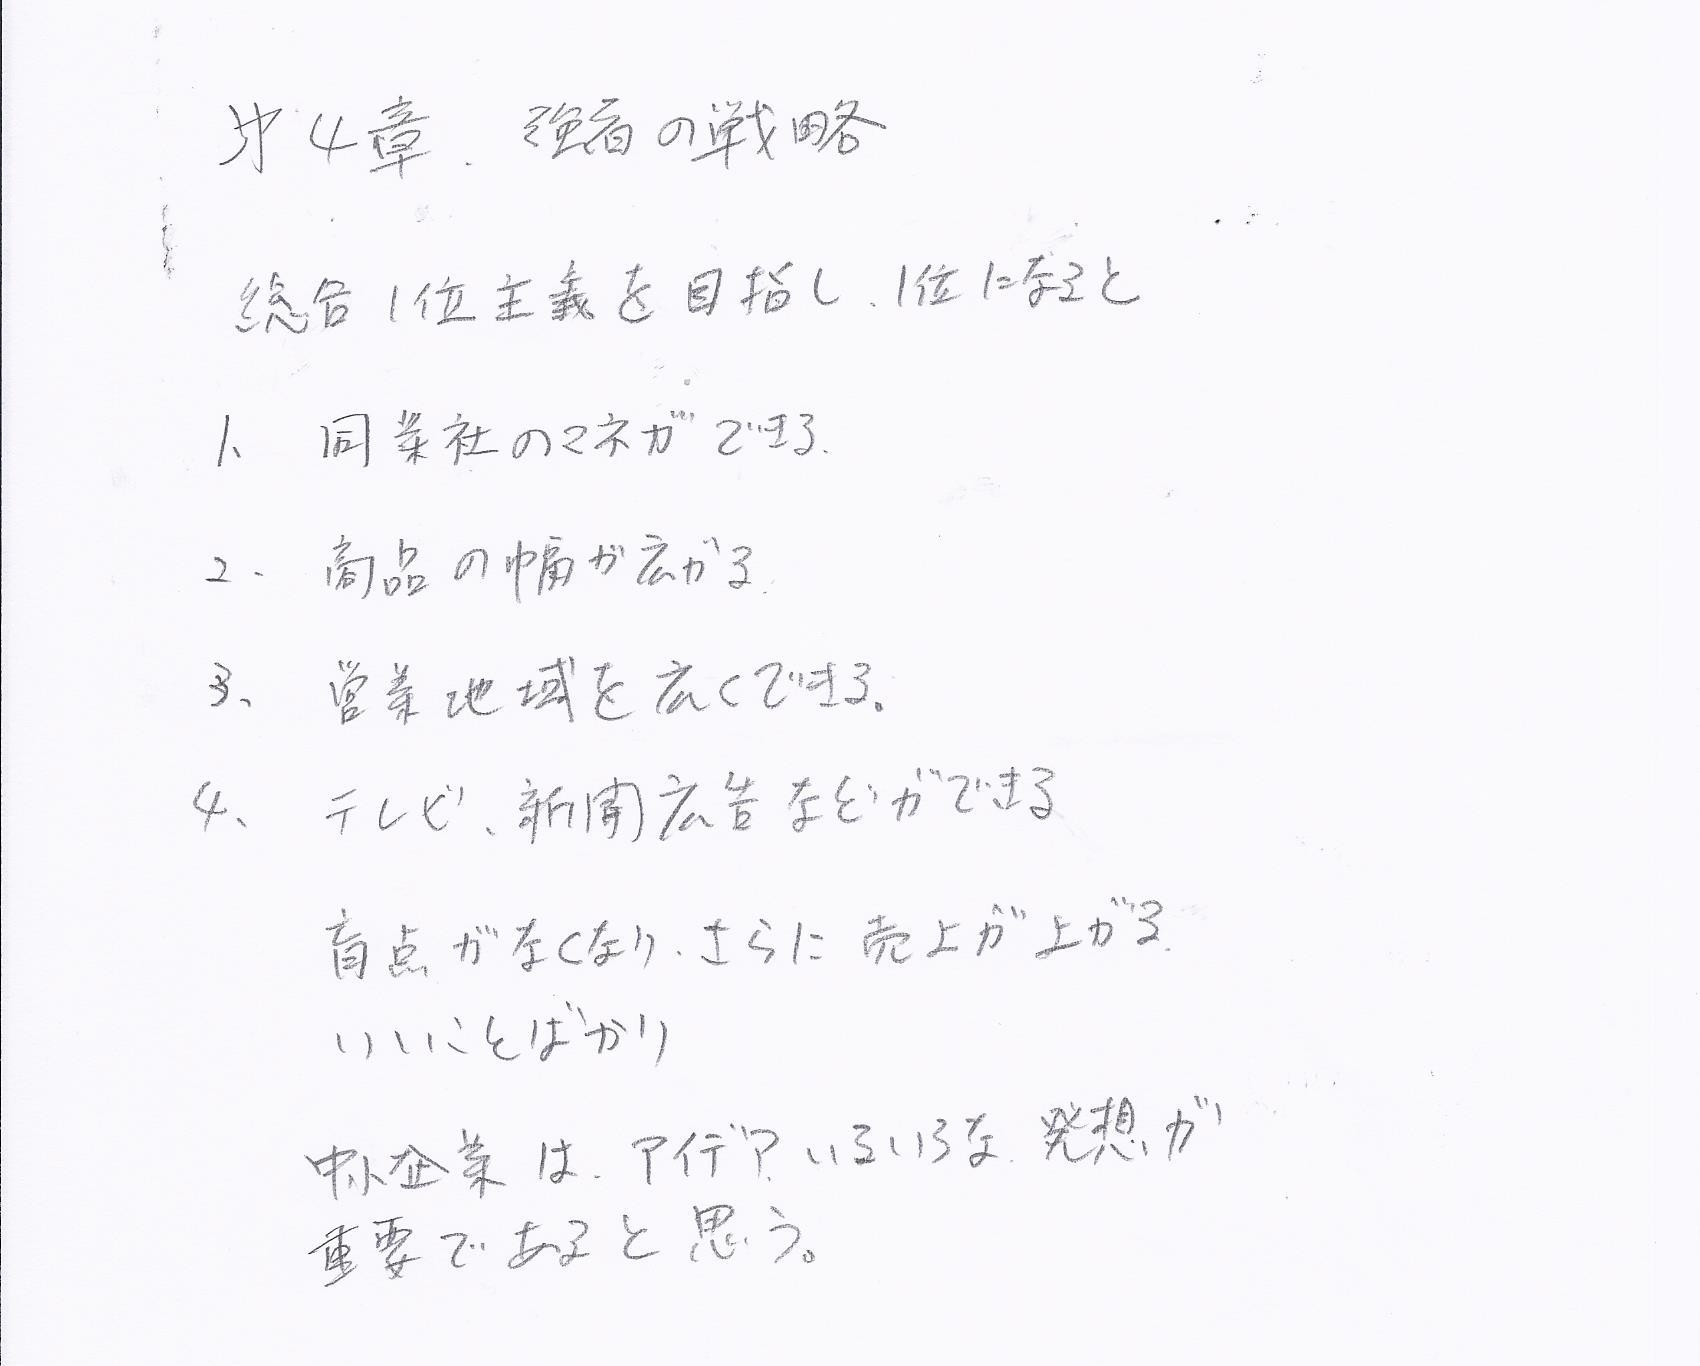 第4章. 強者の戦略
総合1位主義を目指し、1位になると
1、同業社のマネができる.
2. 商品の幅が広がる.
3、営業地域を広くできる。
4、テレビ、新聞広告などができる
盲点がなくなり、さらに売上が上がる.
いいことばかり
中小企業は、アイデア、いろいろな発想が
重要であると思う。